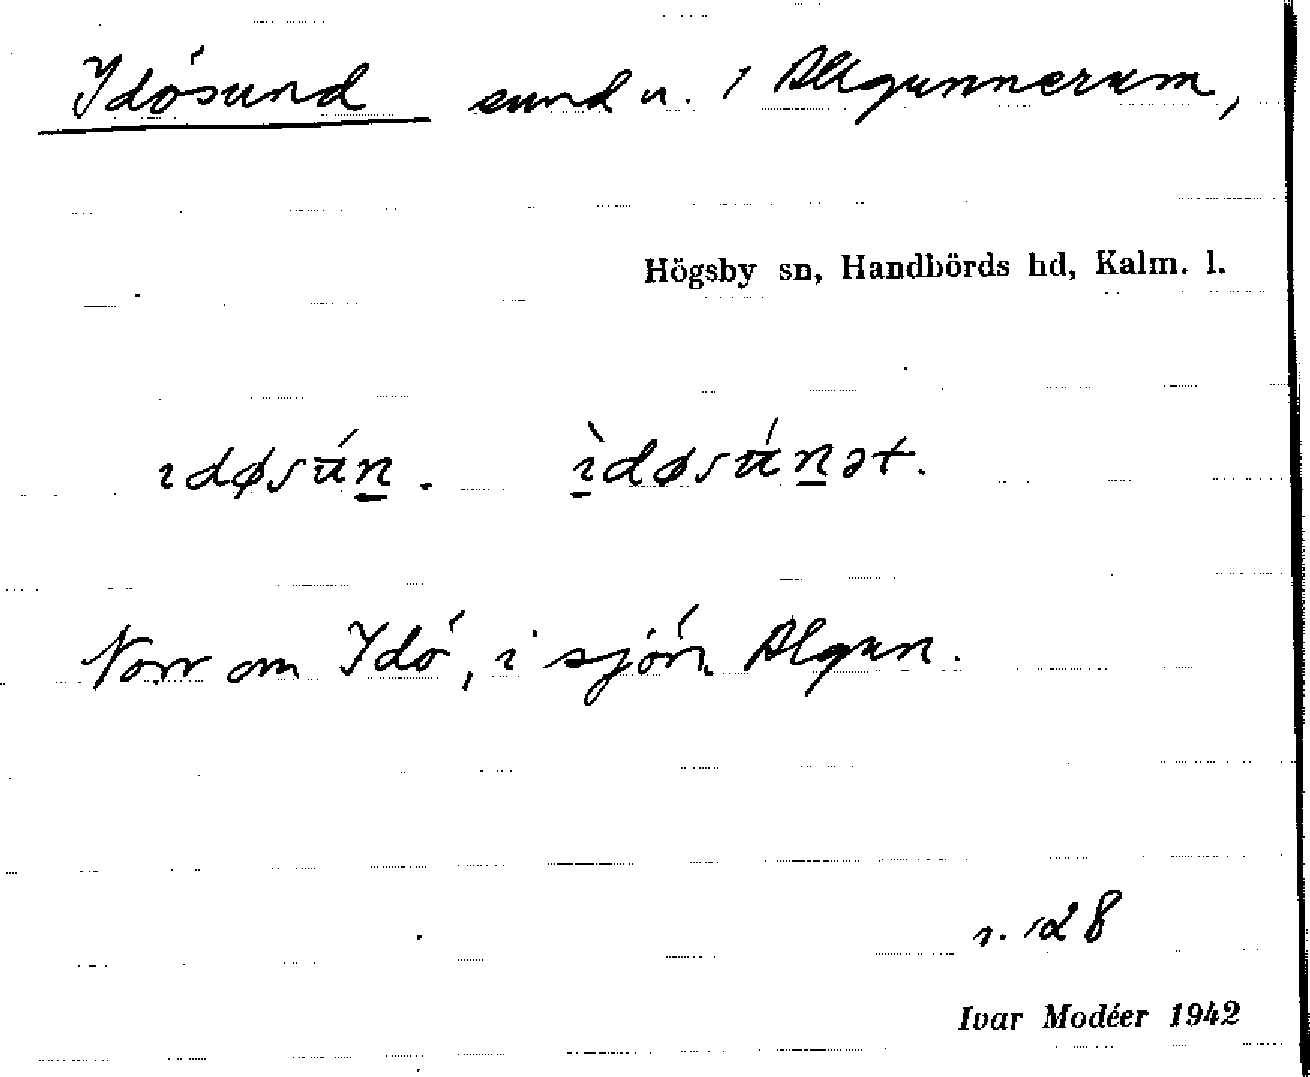 Idösund sund n. i Allgunnerum,
Högsby sn, Handbörds hd, Kalm. l.
ıdøsún̲. ı̲̀døsún̲ət.
Norr om Idö, i sjön Algun.
s. 128
Ivar Modéer 1942